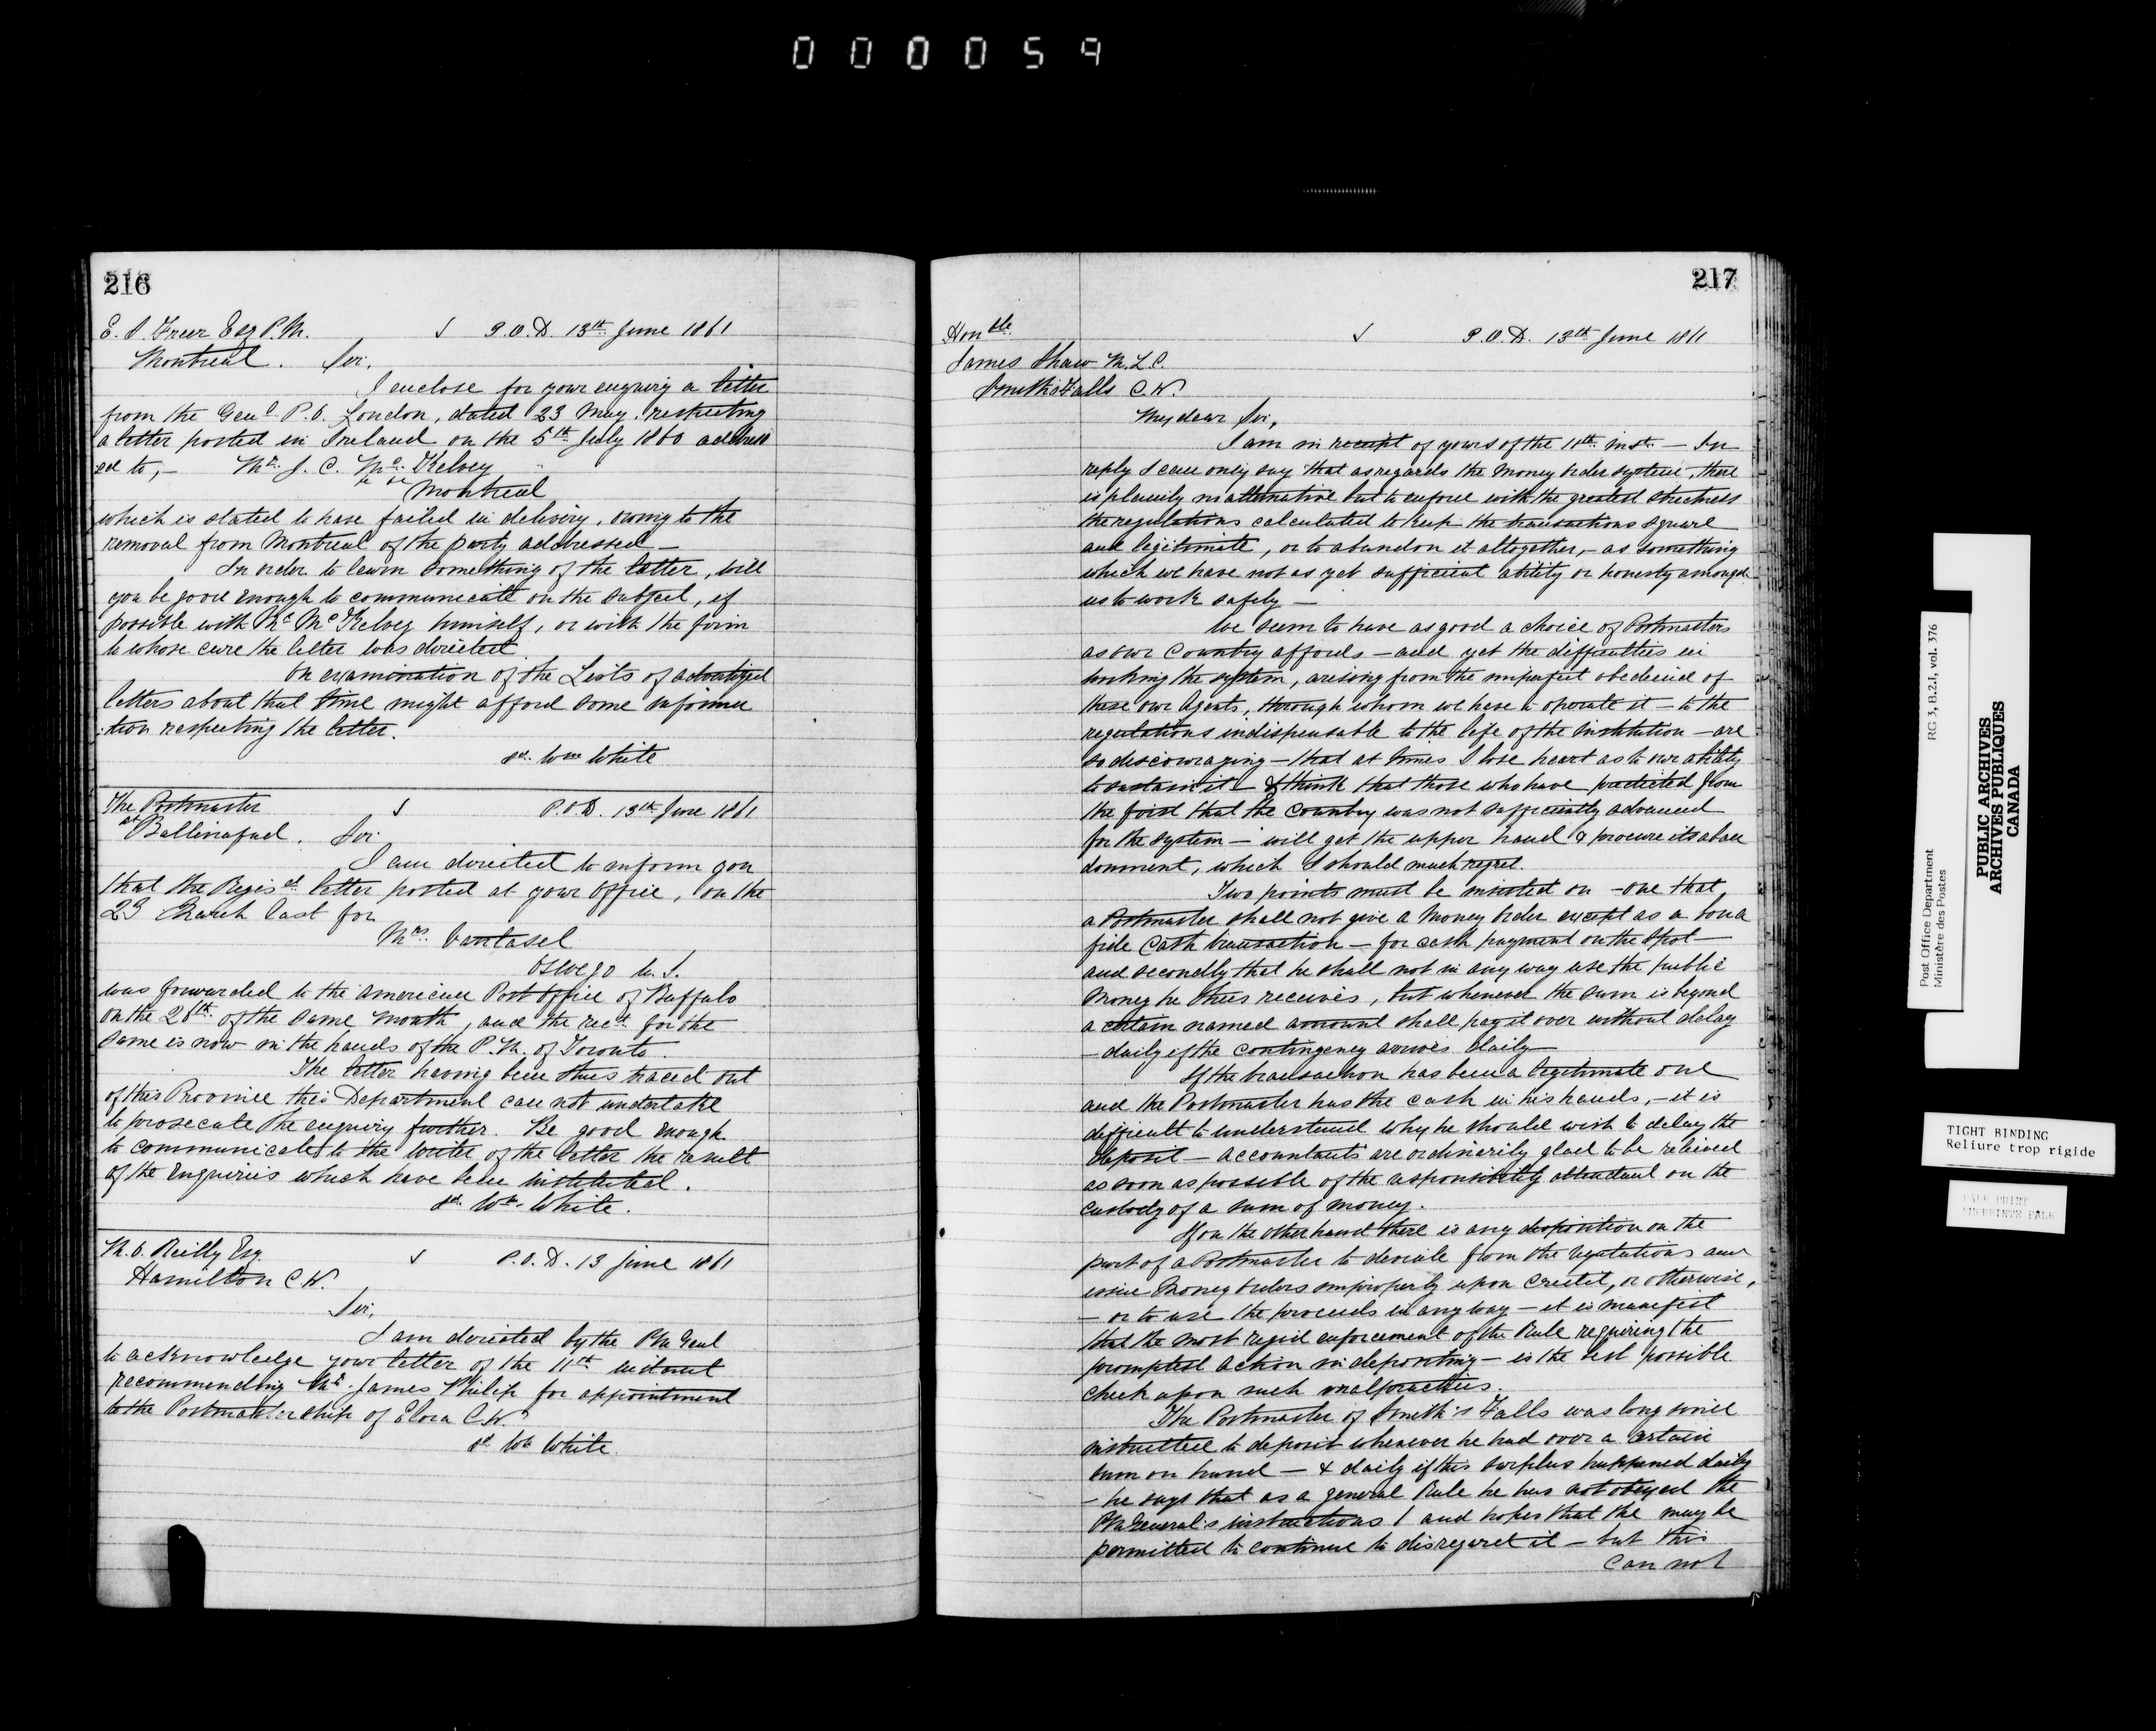 000059
216
E. S. Freer Esq P.M. P.O.D. 13th June 1861
Montreal. Sir,
I enclose for your enquiry a letter
from the Genl P.O. London, dated 23 May, respecting
a letter posted in Ireland on the 5th July 1860 address
ed to,— Mr. J. C. McKelvey
Montreal
which is stated to have failed in delivery, owing to the
removal from Montreal of the party addressed—
In order to learn something of the latter, will
you be good enough to communicate on the subject, if
possible with Mr McKelvey himself, or with the firm
to whose care the letter was directed
An examination of the Lists of advertized
letters about that time might afford some informa
:tion respecting the letter.
sd. Wm White
The Postmaster P.O.D. 13th June 1861
at Ballinafad. Sir
I am directed to inform you
that the Regisd letter posted at your Office, on the
23 March last for
Mrs. Vantasel
Oswego U.S.
was forwarded to the American Post Office of Buffalo
on the 26th of the same month, and the rect. for the
same is now in the hands of the P.M. of Toronto.
The letter having been thus traced out
of this Province this Department can not undertake
to prosecute the enquiry further. Be good enough
to communicate to the writer of the letter the result
of the enquiries which have been instituted.
sd. Wm. White.
M. O. Reilly Esq P.O.D. 13 June 1861
Hamilton C.W.
Sir,
I am directed by the PM Genl
to acknowledge your letter of the 11th instant
recommending Mr. James Philip for appointment
to the Postmastership of Elora C.W.
sd. Wm White.
217
Honble. P.O.D. 13th June 1861
James Shaw M.L.C.
Smith's Falls C.W.
My dear Sir,
I am in receipt of yours of the 11th inst.— In
reply I can only say that as regards the money order system, there
is plainly no alternative but to enforce with the greatest strictness
the regulations calculated to keep the transactions square
and legitimate, or to abandon it altogether,— as something
which we have not as yet sufficient ability or honesty amongst
us to work safely—
We seem to have as good a choice of Postmasters
as our Country affords—and yet the difficulties in
working the system, arising from the imperfect obedience of
these our Agents, through whom we have to operate it—to the
regulations indispensable to the life of the institution—are
so discouraging—that at times I lose heart as to our ability
to sustain it—& think that those who have predicted from
the first that the Country was not sufficiently advanced
for the system—will get the upper hand & procure its aban
donment, which I should much regret.
Two points must be insisted on—one that,
a Postmaster shall not give a Money Order except as a bona
fide Cash transaction—for cash payment on the spot—
and secondly that he shall not in any way use the public
money he thus receives, but whenever the sum is beyond
a certain named amount shall pay it over without delay
—daily if the contingency arrives daily—
If the transaction has been a legitimate one
and the Postmaster has the cash in his hands,—it is
difficult to understand why he should wish to delay the
deposit—accountants are ordinarily glad to be relieved
as soon as possible of the responsibility attendant on the
custody of a sum of money.
If on the other hand there is any disposition on the
part of a Postmaster to deviate from the regulations and
issue Money Orders improperly upon Credit, or otherwise,
—or to use the proceeds in any way—it is manifest
that the most rigid enforcement of the Rule requiring the
promptest action in depositing—is the best possible
check upon such malpractices.
The Postmaster of Smith's Falls was long since
instructed to deposit whenever he had over a certain
sum on hand—& daily if this surplus happened daily
—he says that as a general Rule he has not obeyed the
PM General's instructions! and hopes that he may be
permitted to continue to disregard it—but this
can not
Post Office Department
Ministère des Postes
RG 3, B.2.I, vol. 376
PUBLIC ARCHIVES
ARCHIVES PUBLIQUES
CANADA
TIGHT BINDING
Reliure trop rigide
PALE PRINT